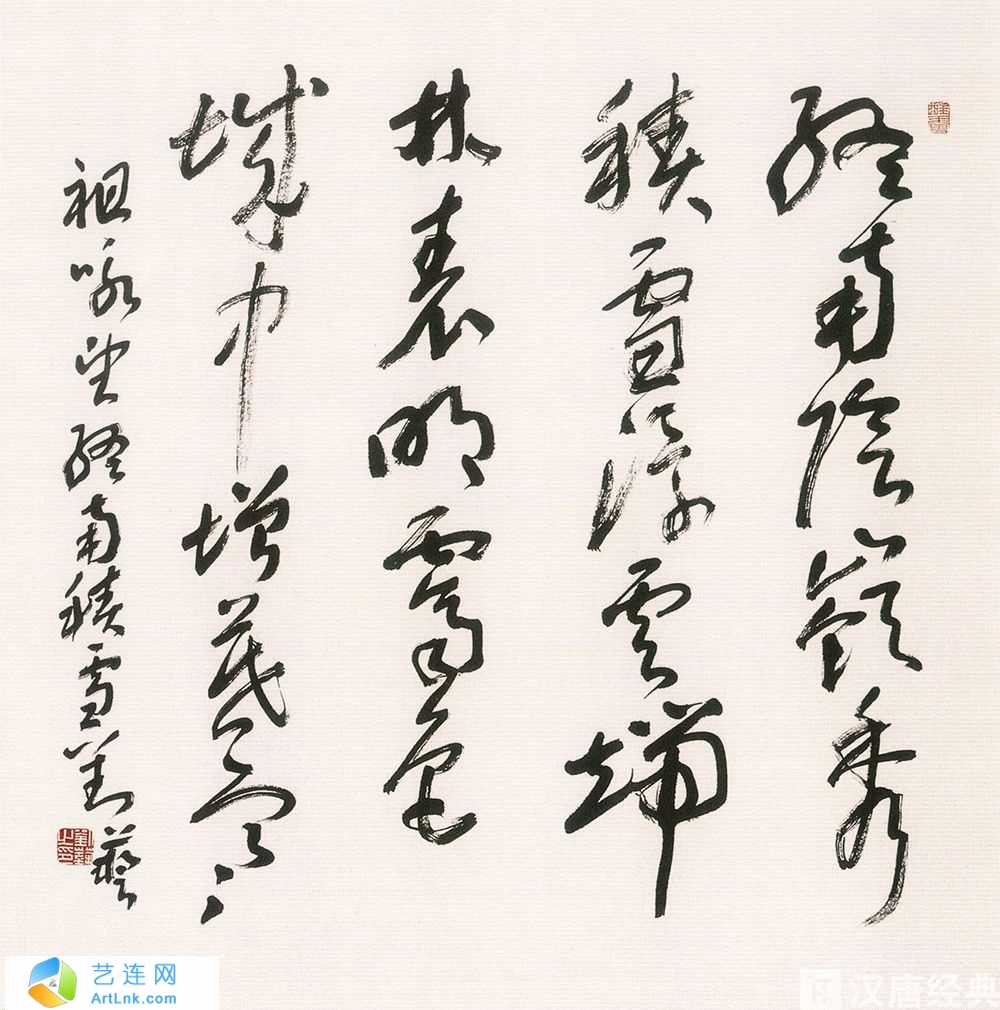 終南陰嶺秀
積雪浮雲端
林表明霽色
城中增暮寒
祖咏望終南積雪劉藝
劉藝之印
艺连网
ArtLnk.com
汉唐经典